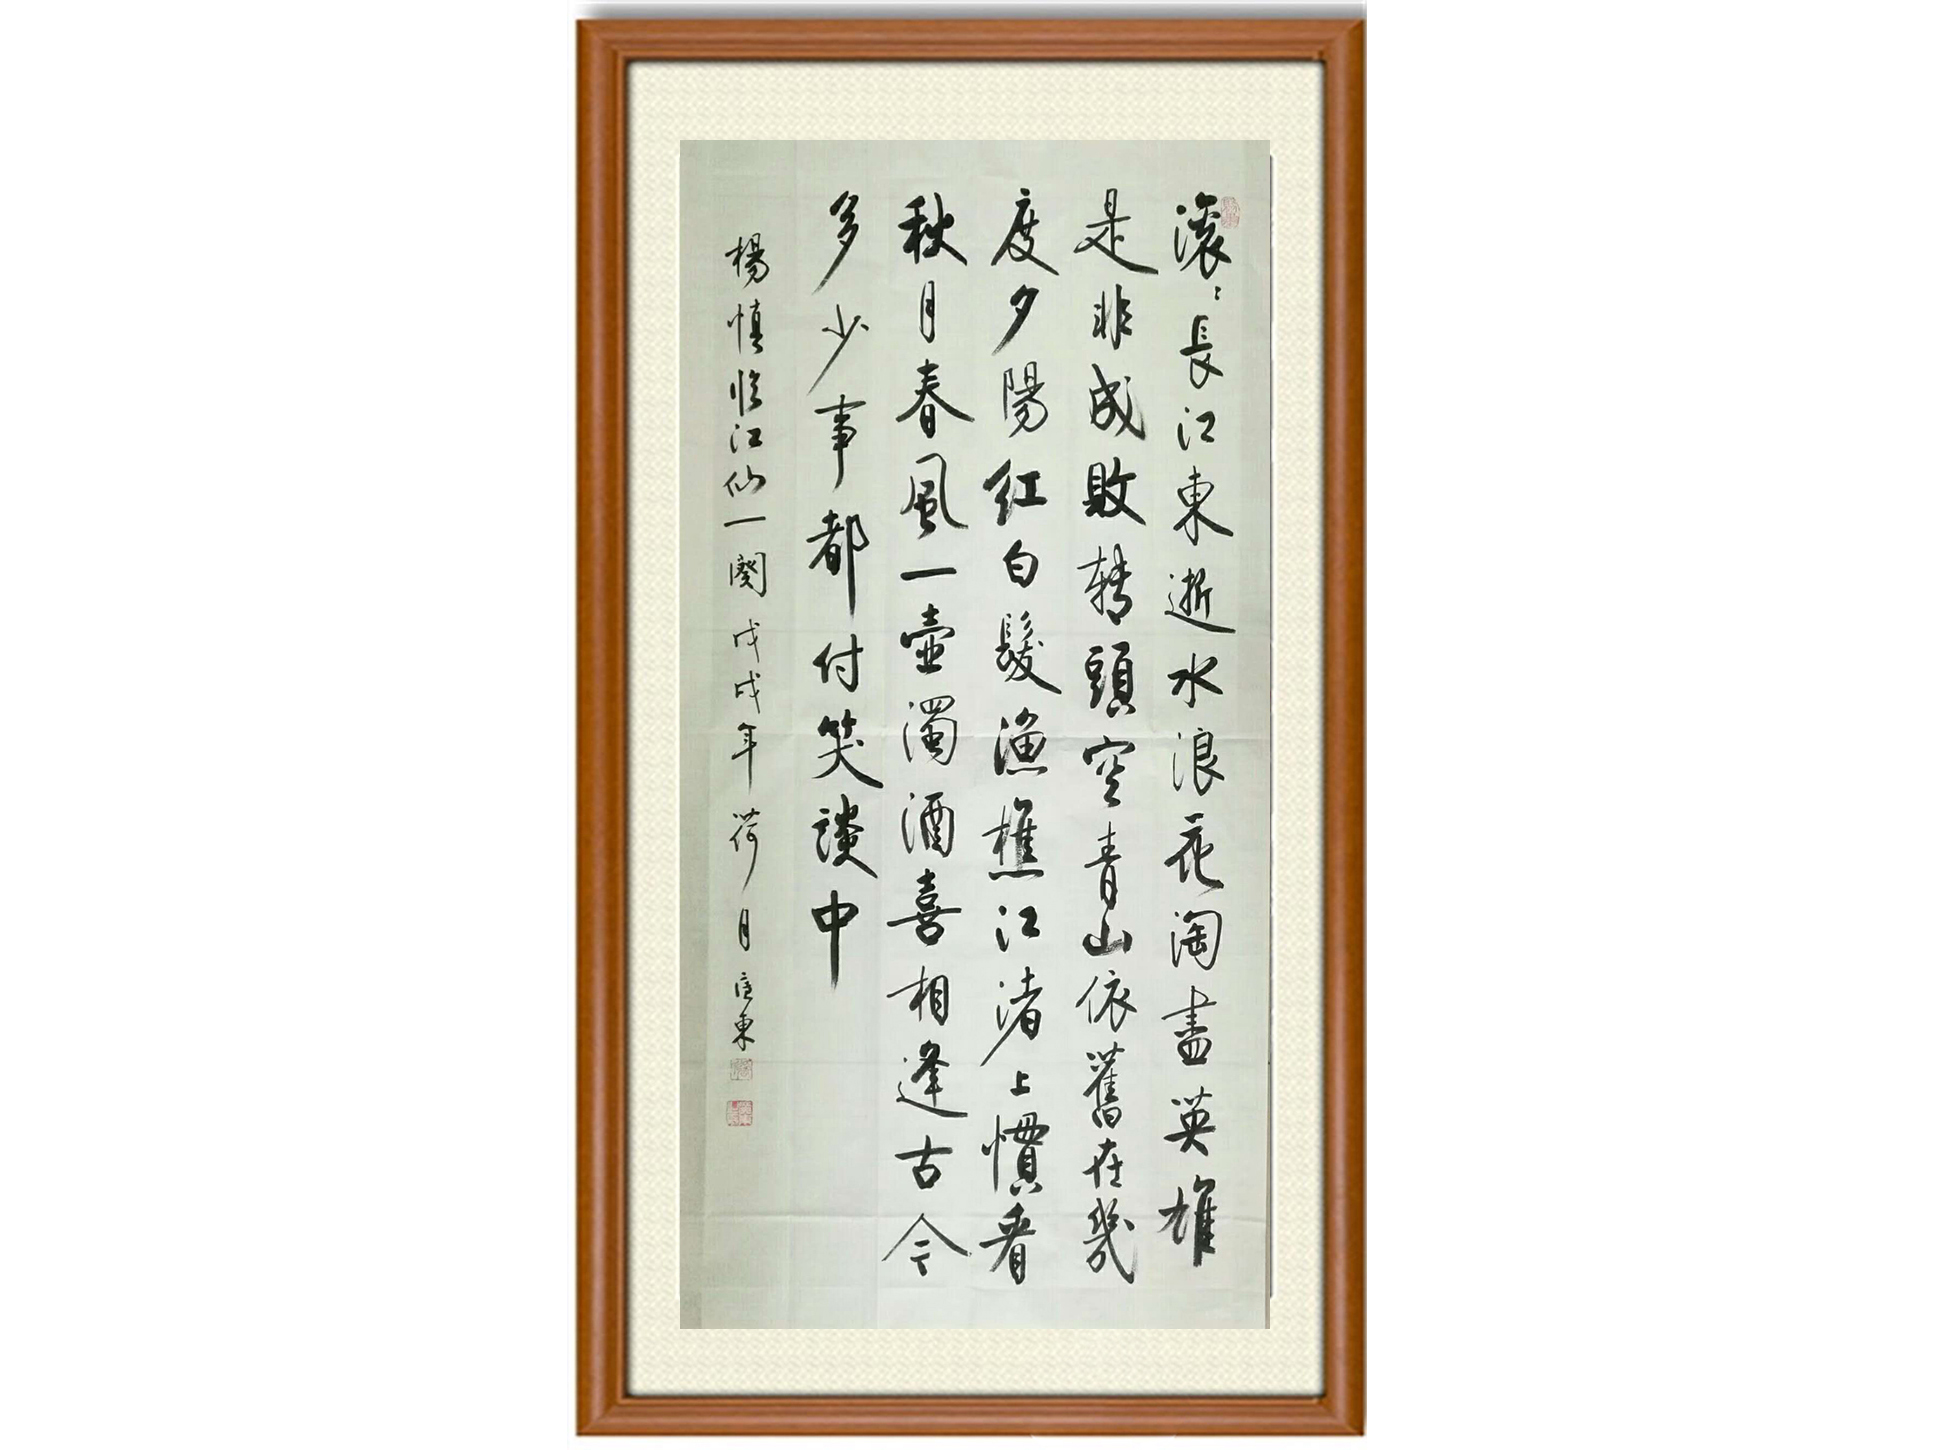 滚滚長江東逝水浪花淘盡英雄
是非成敗轉頭空青山依舊在幾
度夕陽红白髮漁樵江渚上慣看
秋月春風一壺濁酒喜相逢古今
多少事都付笑談中
楊慎临江仙一闋戊戌年荷月東